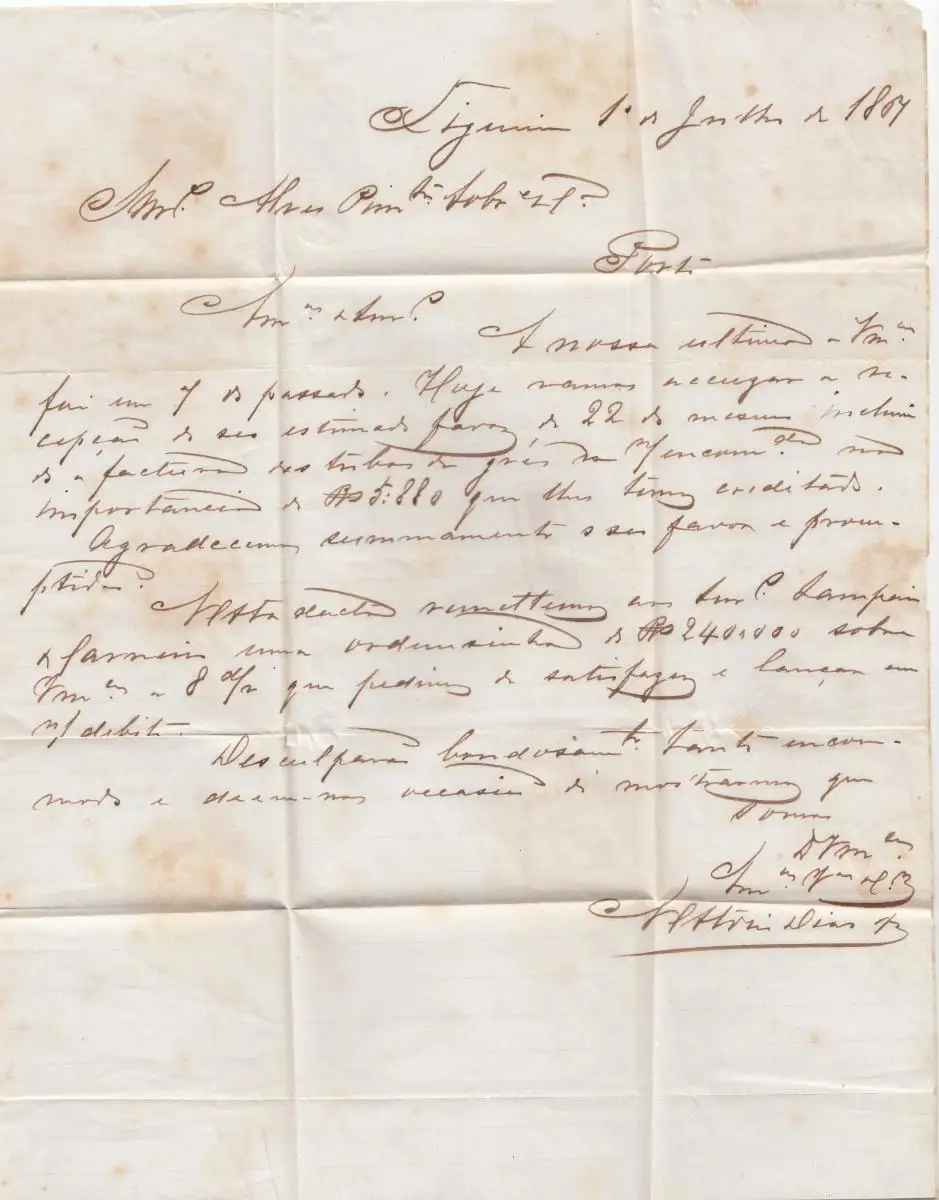 1º de Julho de 1867
Alves Pimtª Sobrº & Cª
Porto
Amºs & Snrs.
A nossa ultima a Vmces
foi em 7 do passado. Hoje vamos accuzar a re-
cepção do seu estimado favor de 22 do mesmo incluin
do a factura dos tubos de grés da n/encomda na
importancia de Rs 5:880 que lhes temos creditado.
Agradecemos summamente o seu favor e prom-
ptidão.
Nesta dacta remettemos aos Snrs. Sampaio
& uma ordemsinha de Rs 240:000 sobre
Vmces a 8 d/v que pedimos de satisfazer e lançar em
n/ debito.
Desculparão bondosamte tanto incom-
modo e deem-nos occasião de mostrarmos que
somos
D Vmces
Amºs
Dias